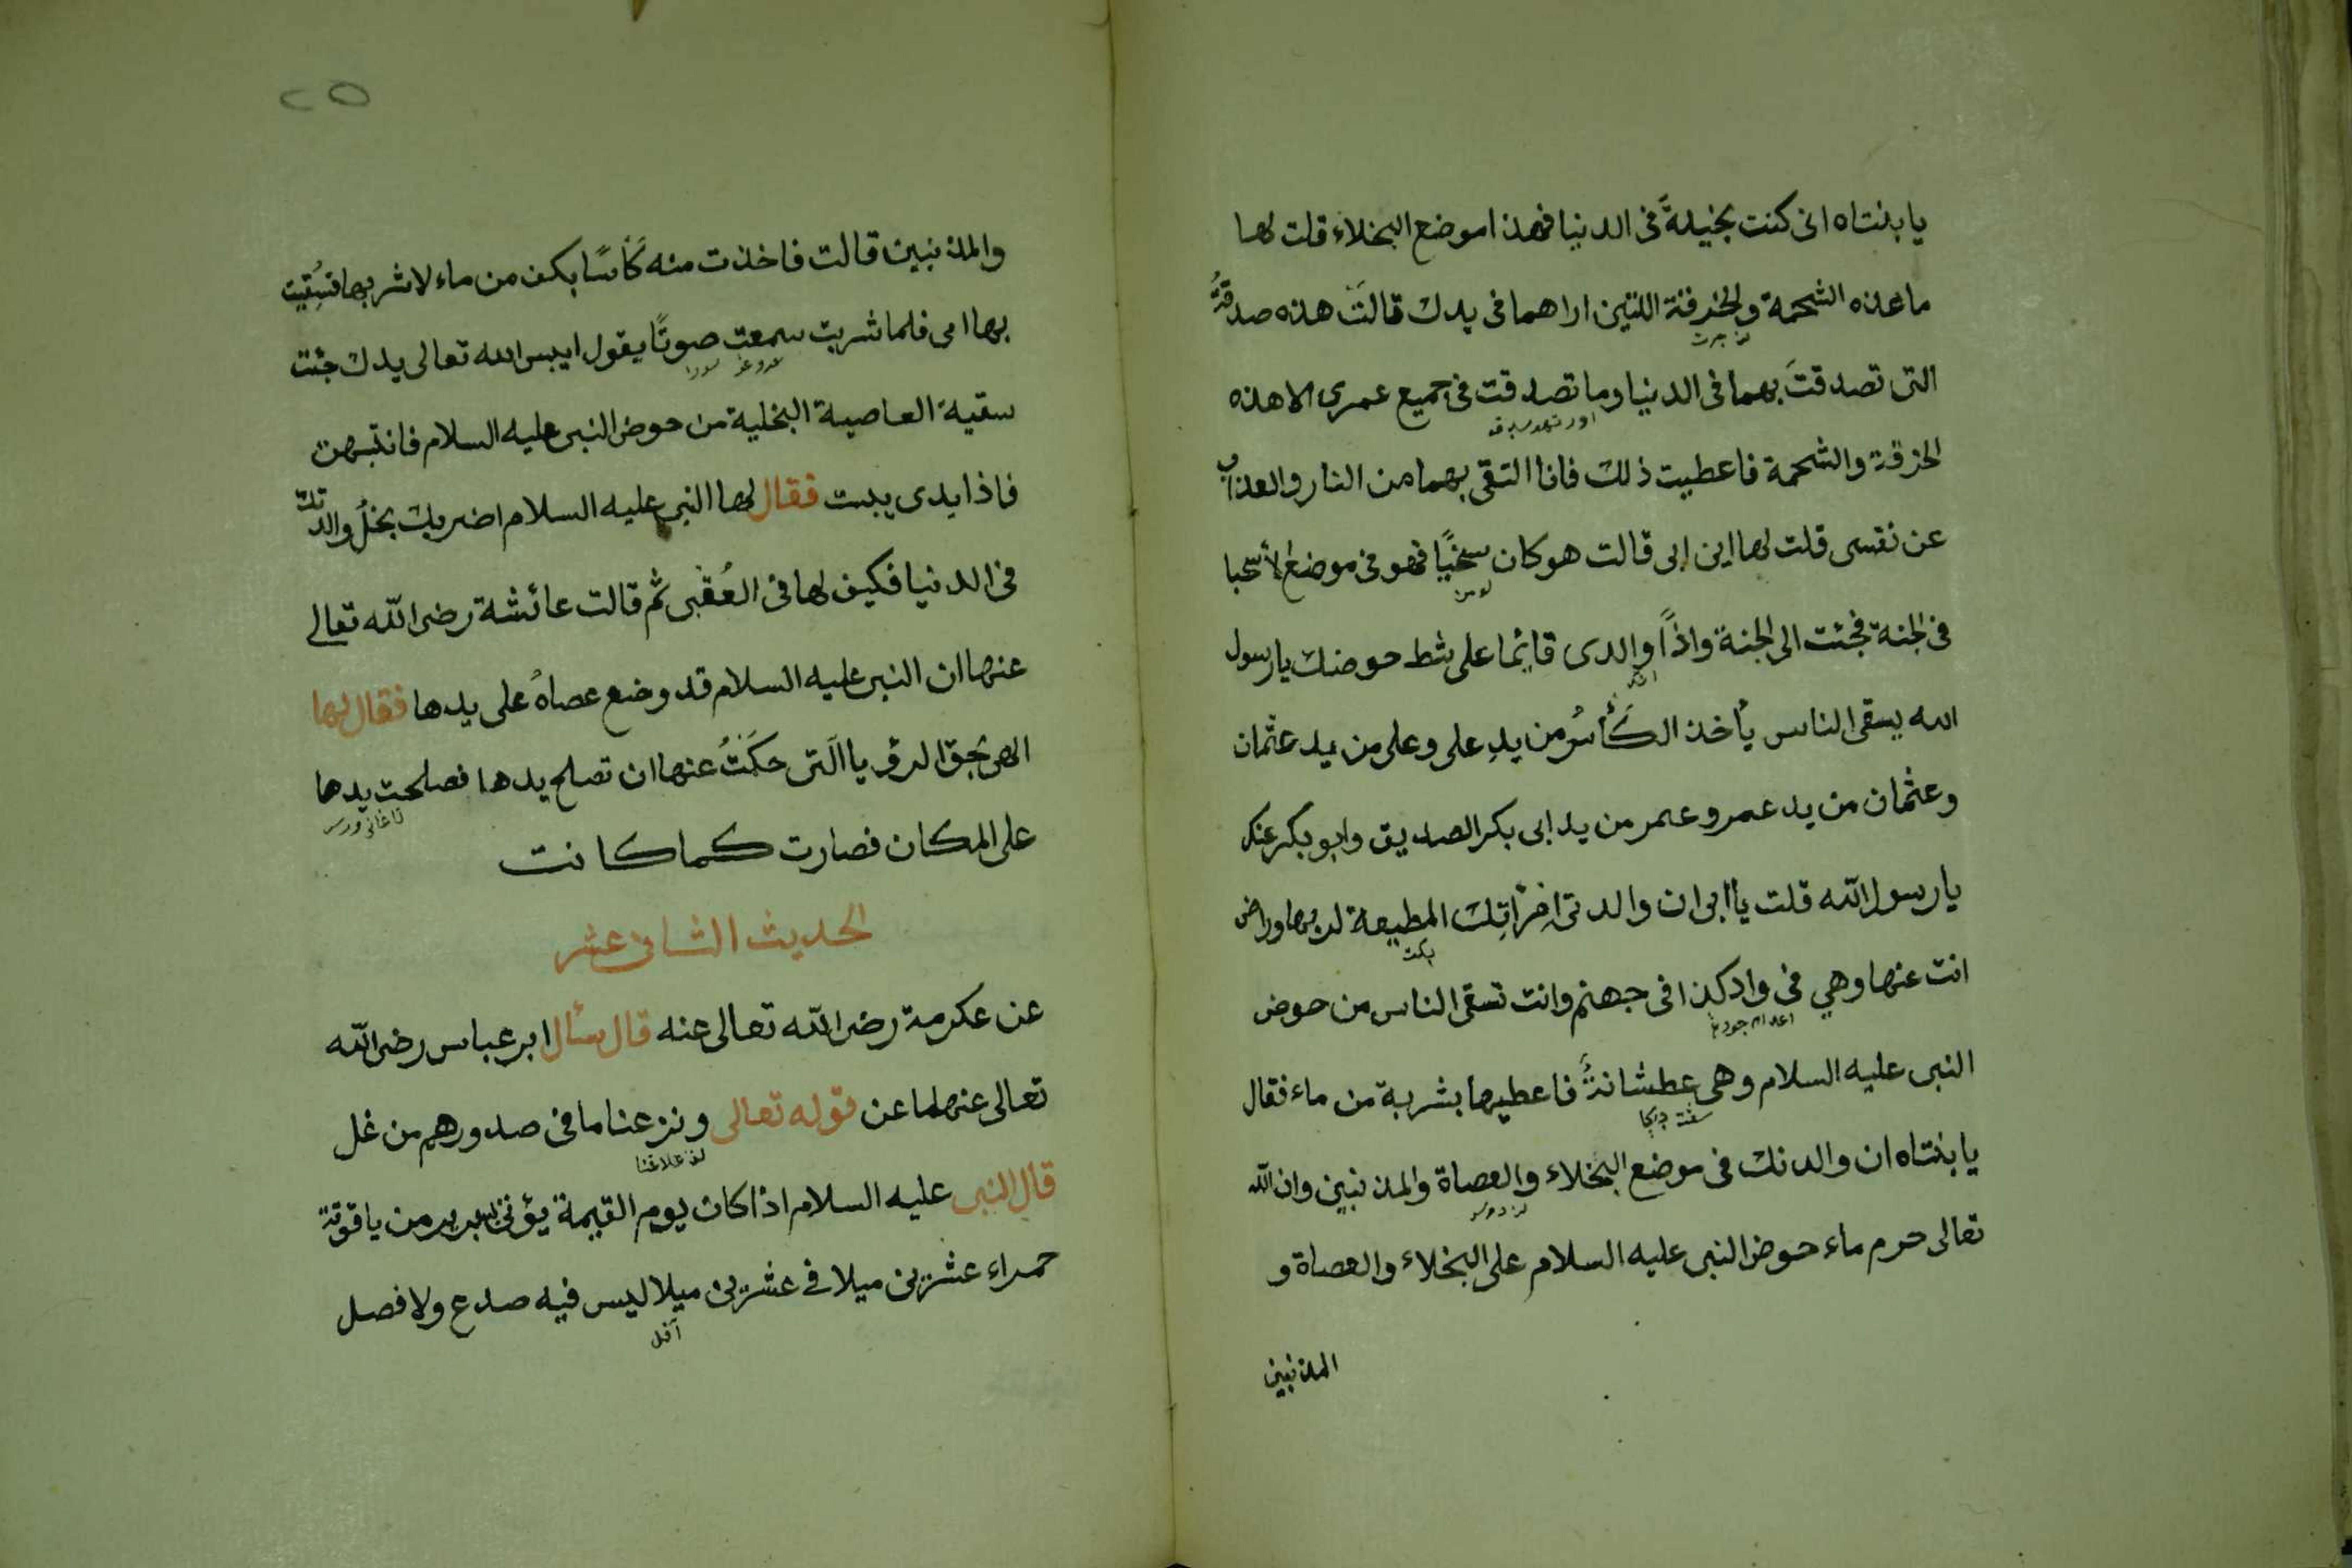 يا بنتاه انى كنت بخيلةً فى الدنيا فهذا موضع البخلاء قلت لها
ما هذه الشحمة والخرقة اللتين اراهما فى يدك قالت هذه صدقةٌ
التى تصدقت بهما فى الدنيا وما تصدقت فى جميع عمرى الا هذه
الخرقة والشحمة فاعطيت ذلك فانا التقى بهما من النار والعذاب
عن نفسى قلت لها اين ابى قالت هو كان سخيًا فهو فى موضع الأسخيا
فى الجنة فجئت الى الجنة واذاً والدى قائما على شط حوضك يا رسول
الله يسقى الناس يأخذ الكأسُ من يدِ على وعلى من يد عثمان
وعثمان من يد عمر وعمر من يد ابى بكر الصديق وابو بكر عنك
يا رسول الله قلت يا ابى ان والدتى امرأتك المطيعة لربها وراض
انت عنها وهي فى واد كذا فى جهنم وانت تسقى الناس من حوض
النبى عليه السلام وهى عطشانةٌ فاعطيها بشربة من ماء فقال
يا بنتاه ان والدتك فى موضع البخلاء والعصاة والمذنبين وان الله
تعالى حرم ماء حوض النبى عليه السلام على البخلاء والعصاة و
المذنبين
٢٥
والمذنبين قالت فاخذت منه كأسًا بكف من ماء لاشربها فسُقيت
بها امى فلما شربت سمعت صوتًا يقول ايبس الله تعالى يدك جئت
سقية العاصية البخلية من حوض النبى عليه السلام فانتبهت
فاذا يدى يبست فقال لها النبى عليه السلام اضر بك بخلُ والدتك
فى الدنيا فكيف لها فى العُقْبى ثم قالت عائشة رضى الله تعالى
عنها ان النبى عليه السلام قد وضع عصاهُ على يدها فقال لها
الهى بحق الرؤيا التى حكَتْ عنها ان تصلح يدها فصلحت يدها
على المكان فصارت كما كانت
الحديث الثانى عشر
عن عكرمة رضى الله تعالى عنه قال سأل ابن عباس رضى الله
تعالى عنهما عن قوله تعالى ونزعنا ما فى صدورهم من غل
قال النبى عليه السلام اذا كان يوم القيمة يؤتى بسرير من ياقوتة
حمراء عشرين ميلا في عشرين ميلا ليس فيه صدع ولا فصل